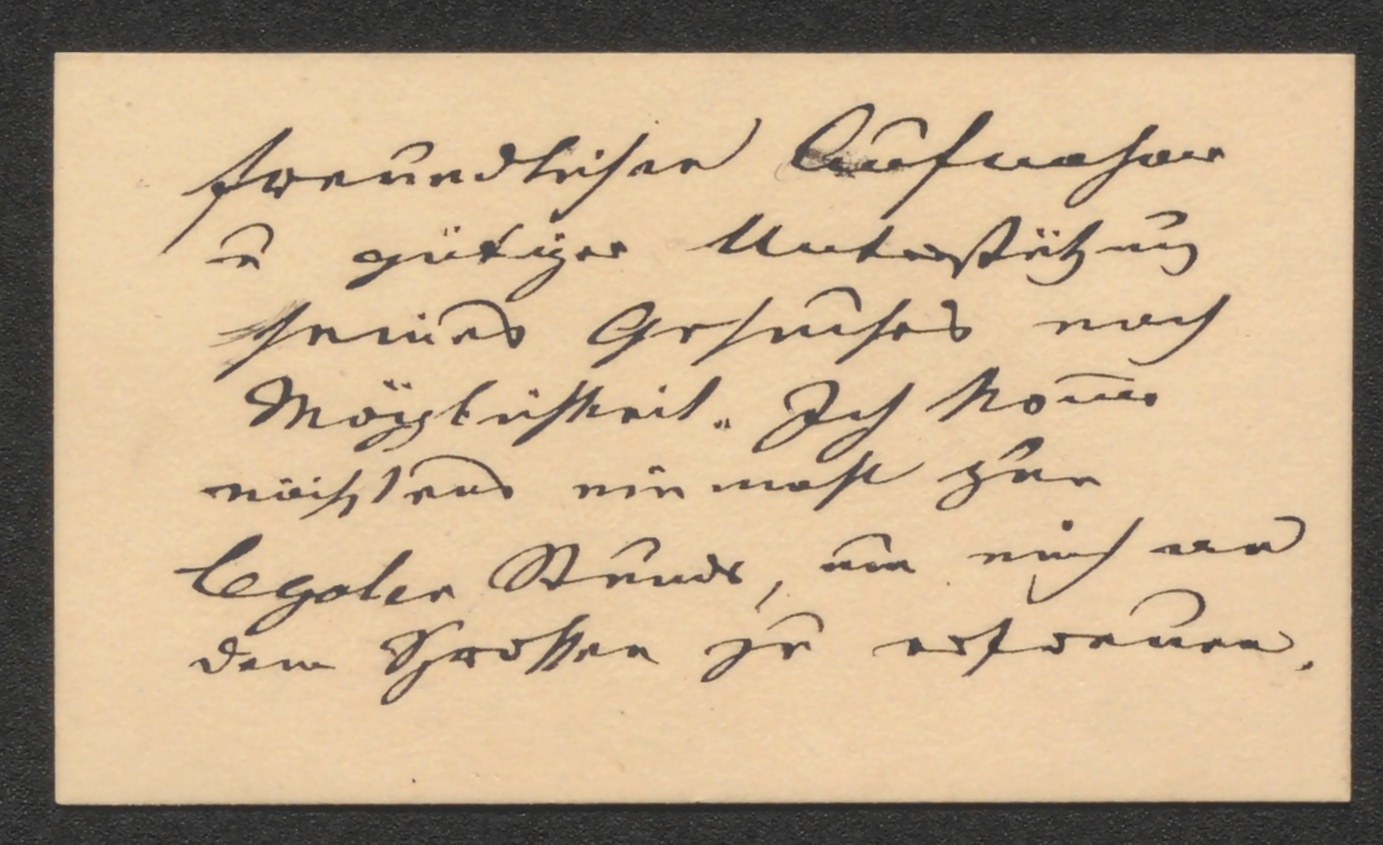 freundlicher Aufnahme
u gütiger Unterstützung
seines Gesuches nach
Möglichkeit. Ich kom̅e
nächstens einmal zur
legalen Stunde, um mich an
dem Sprossen zu erfreuen.